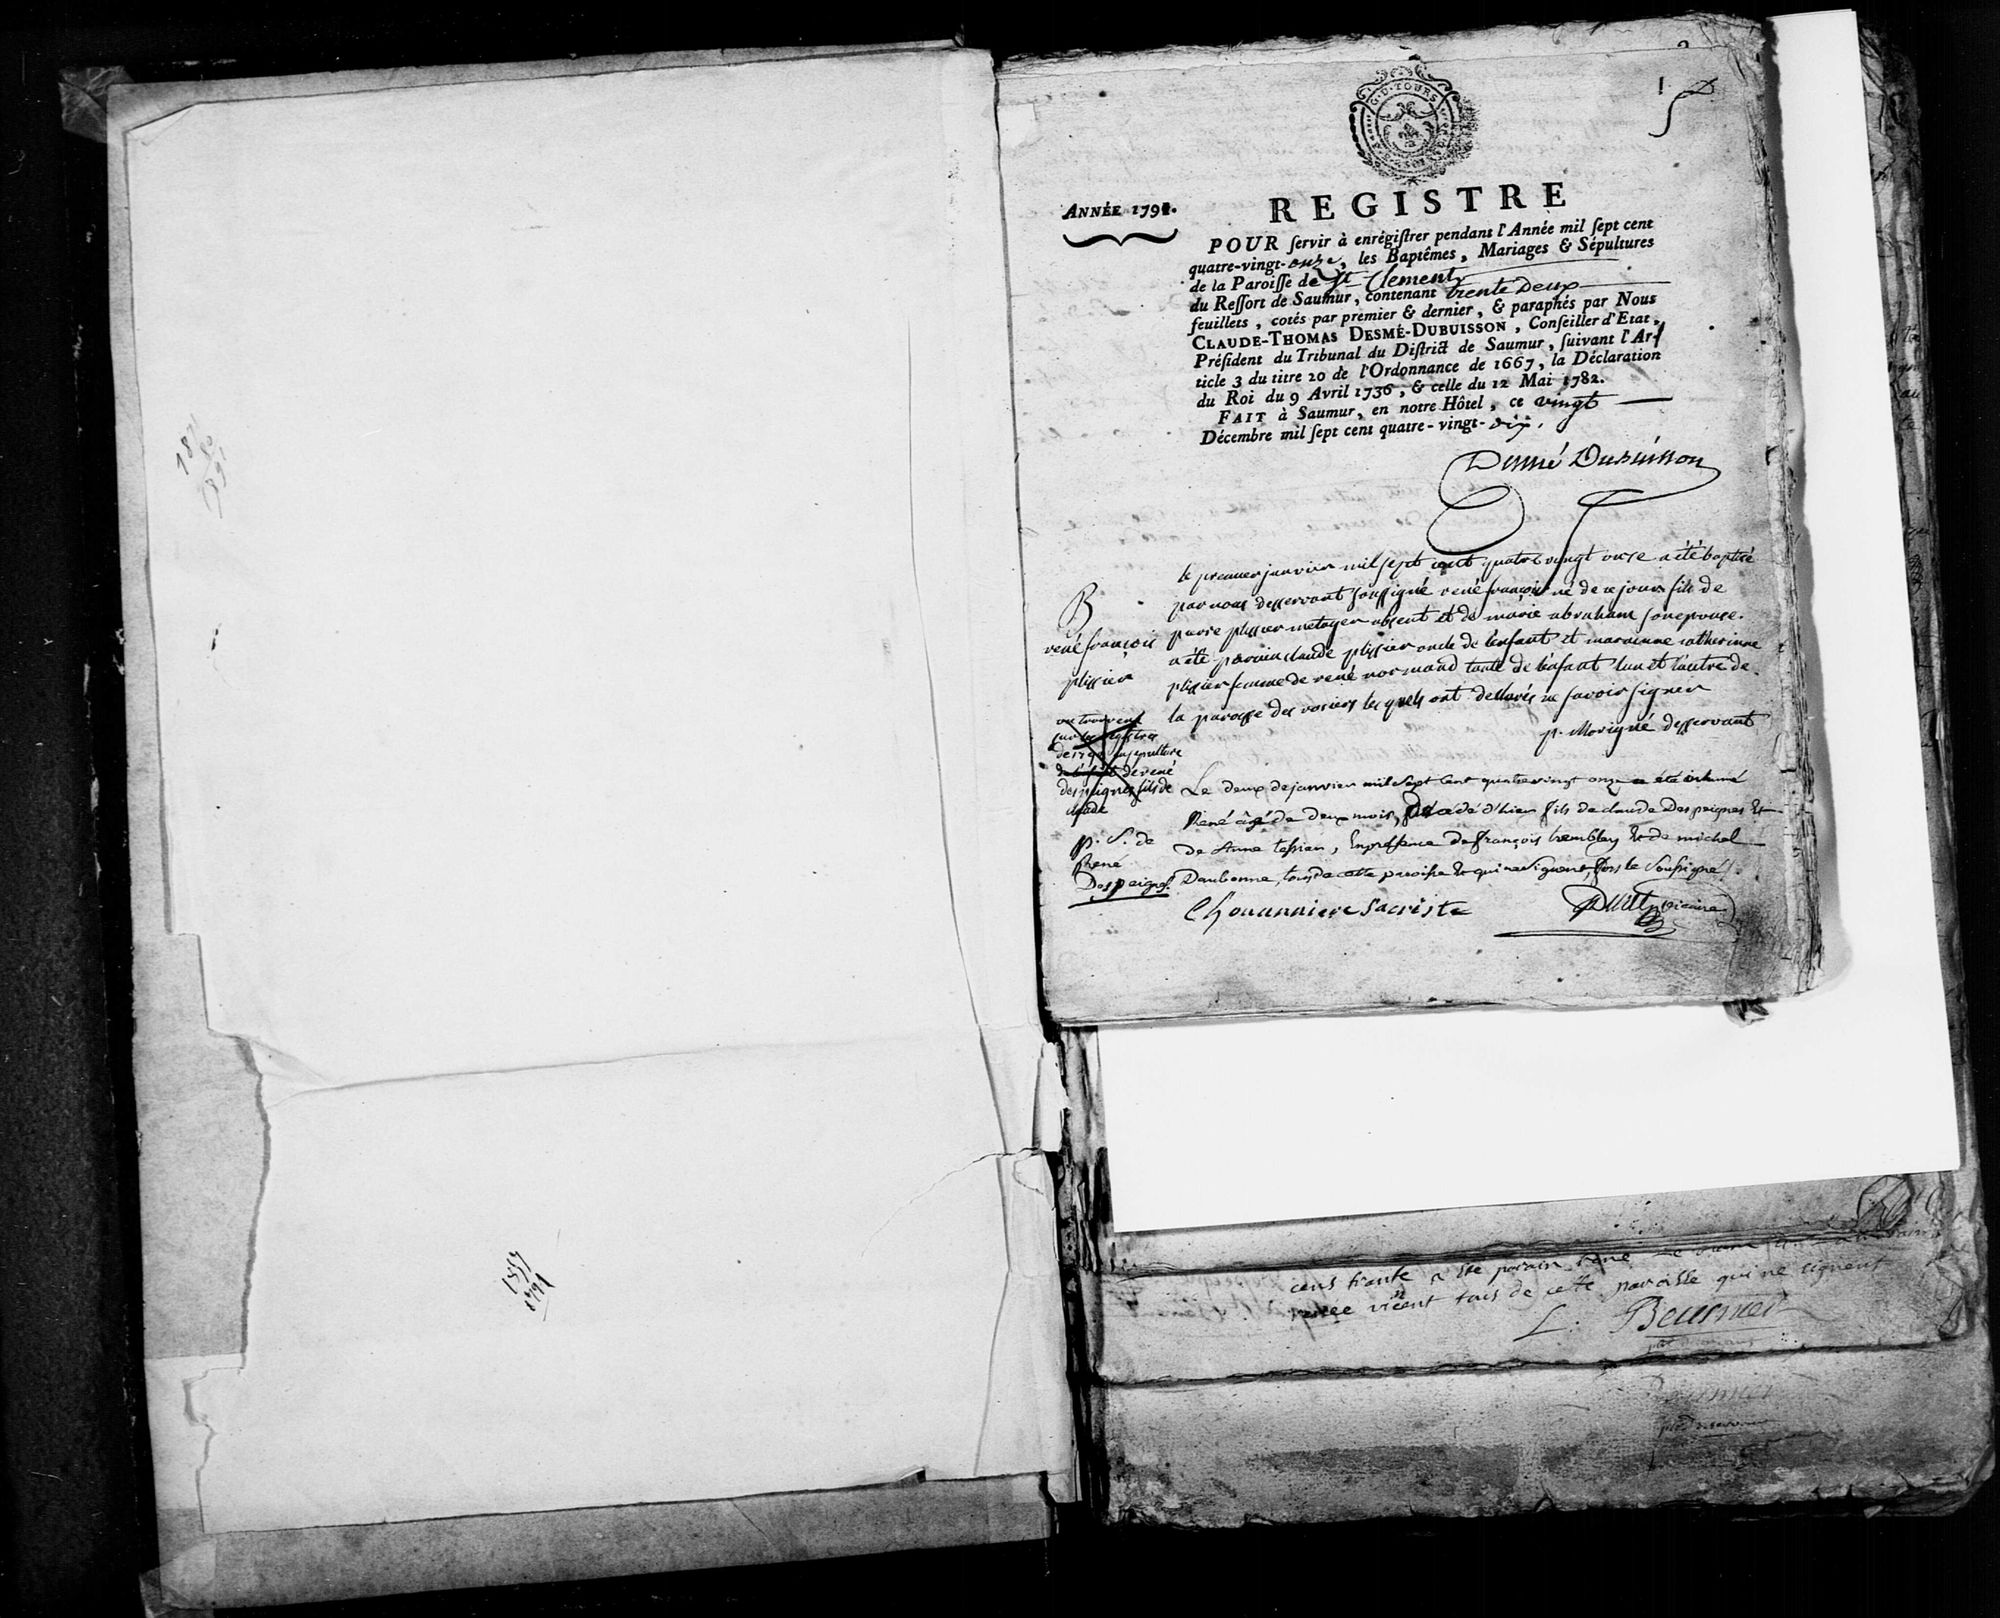 G. D. TOURS
1
ANNÉE 1791.
REGISTRE
POUR servir à enrégistrer pendant l'Année mil sept cent
quatre-vingt-onze, les Baptêmes, Mariages & Sépultures
de la Paroisse de St Clement
du Ressort de Saumur, contenant trente Deux
feuillets, cotés par premier & dernier, & paraphés par Nous
CLAUDE-THOMAS DESMÉ-DUBUISSON, Conseiller d'Etat,
Président du Tribunal du District de Saumur, suivant l'Ar-
ticle 3 du titre 20 de l'Ordonnance de 1667, la Déclaration
du Roi du 9 Avril 1736, & celle du 12 Mai 1782.
FAIT à Saumur, en notre Hôtel, ce vingt
Décembre mil sept cent quatre-vingt-dix.
Desmé Dubuisson
B
rené françois
plissier
le premier janvier mil sept cent quatre vingt onse a été baptisé
par nous desservant soussigné rené françois né de ce jour fils de
pierre plissier metayer absent et de marie abraham son epouse.
a été parain claude plissier oncle de l'enfant et maraine catherinne
plissier femme de rené normand tante de l'enfant lun et l'autre de
la paroisse des rosiers les quels ont declarés ne savoir signer
p. Morigné desservant
de rené
fils de
claude
p. S. de
René
Despeignes
Le deux de janvier mil Sept Cent quatre vingt onze a été inhumé
René âgé de deux mois, Décédé d'hier fils de claude Despeignes &
de Anne tessier, En presence de François tremblay & de michel
Daubonne, tous de cette paroisse & qui ne Signent, fors le Soussigné.
Chouanniere Sacriste
vicaire
187
1791
cens trante a ete parain rené
renée vicent tous de cette paroisse qui ne signent
L. Beurnier